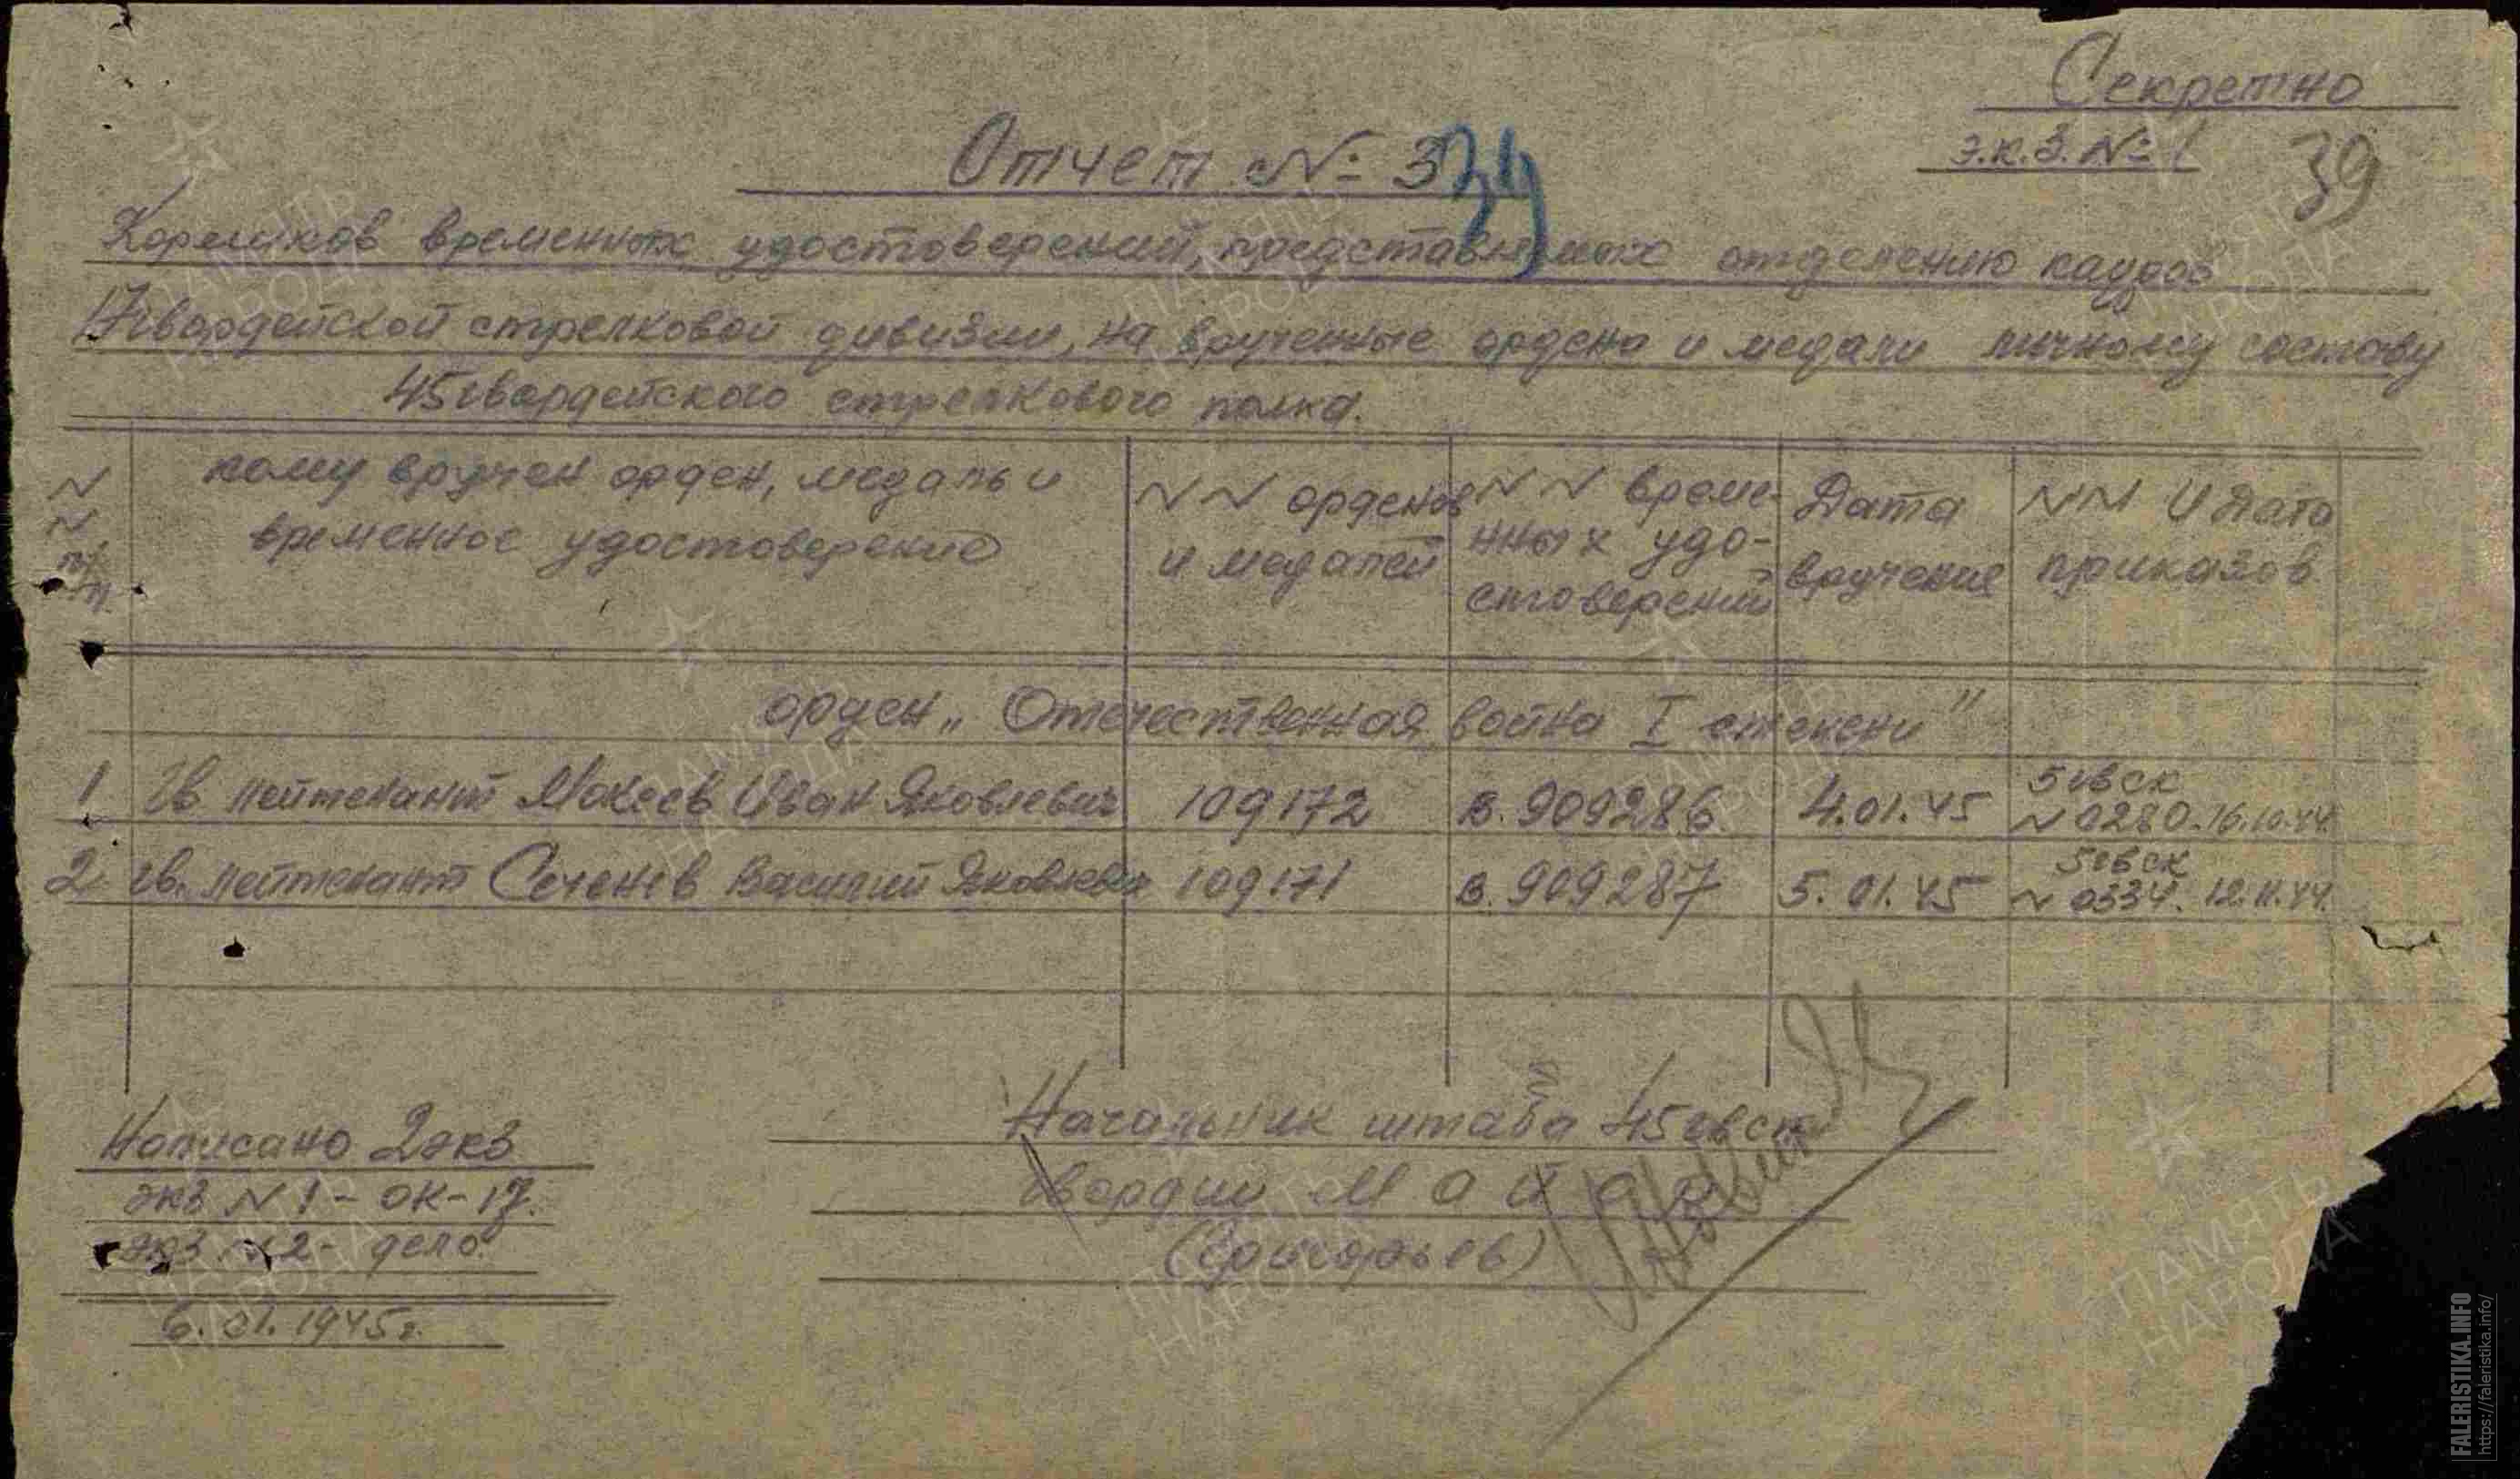 Секретно
Отчет № 3
э.к.з. № 1
39
Корешков временных удостоверений, представляемых отделению кадров
17 гвардейской стрелковой дивизии, на врученные ордена и медали личному составу
45 гвардейского стрелкового полка.
N N п/п
кому вручен орден, медаль и временное удостоверение
N N орденов и медалей
N N времен- нных удо- стоверений
Дата вручения
N N и дата приказов
орден „Отечественная война I степени"
1 гв лейтенант Мокеев Иван Яковлевич 109172 В. 909286 4.01.45 5 гвск N 0280. 16.10.44.
2 гв. лейтенант Сеченев Василий Яковлевич 109171 В. 909287 5.01.45 5 гвск N 0334. 12.11.44.
Начальник штаба 45 гвсп
гвардии майор
(Григорьев)
Написано 2 экз
экз N 1 - ОК - 17.
экз N 2 - дело.
6.01.1945г.
ПАМЯТЬ НАРОДА
FALERISTIKA.INFO
https://faleristika.info/